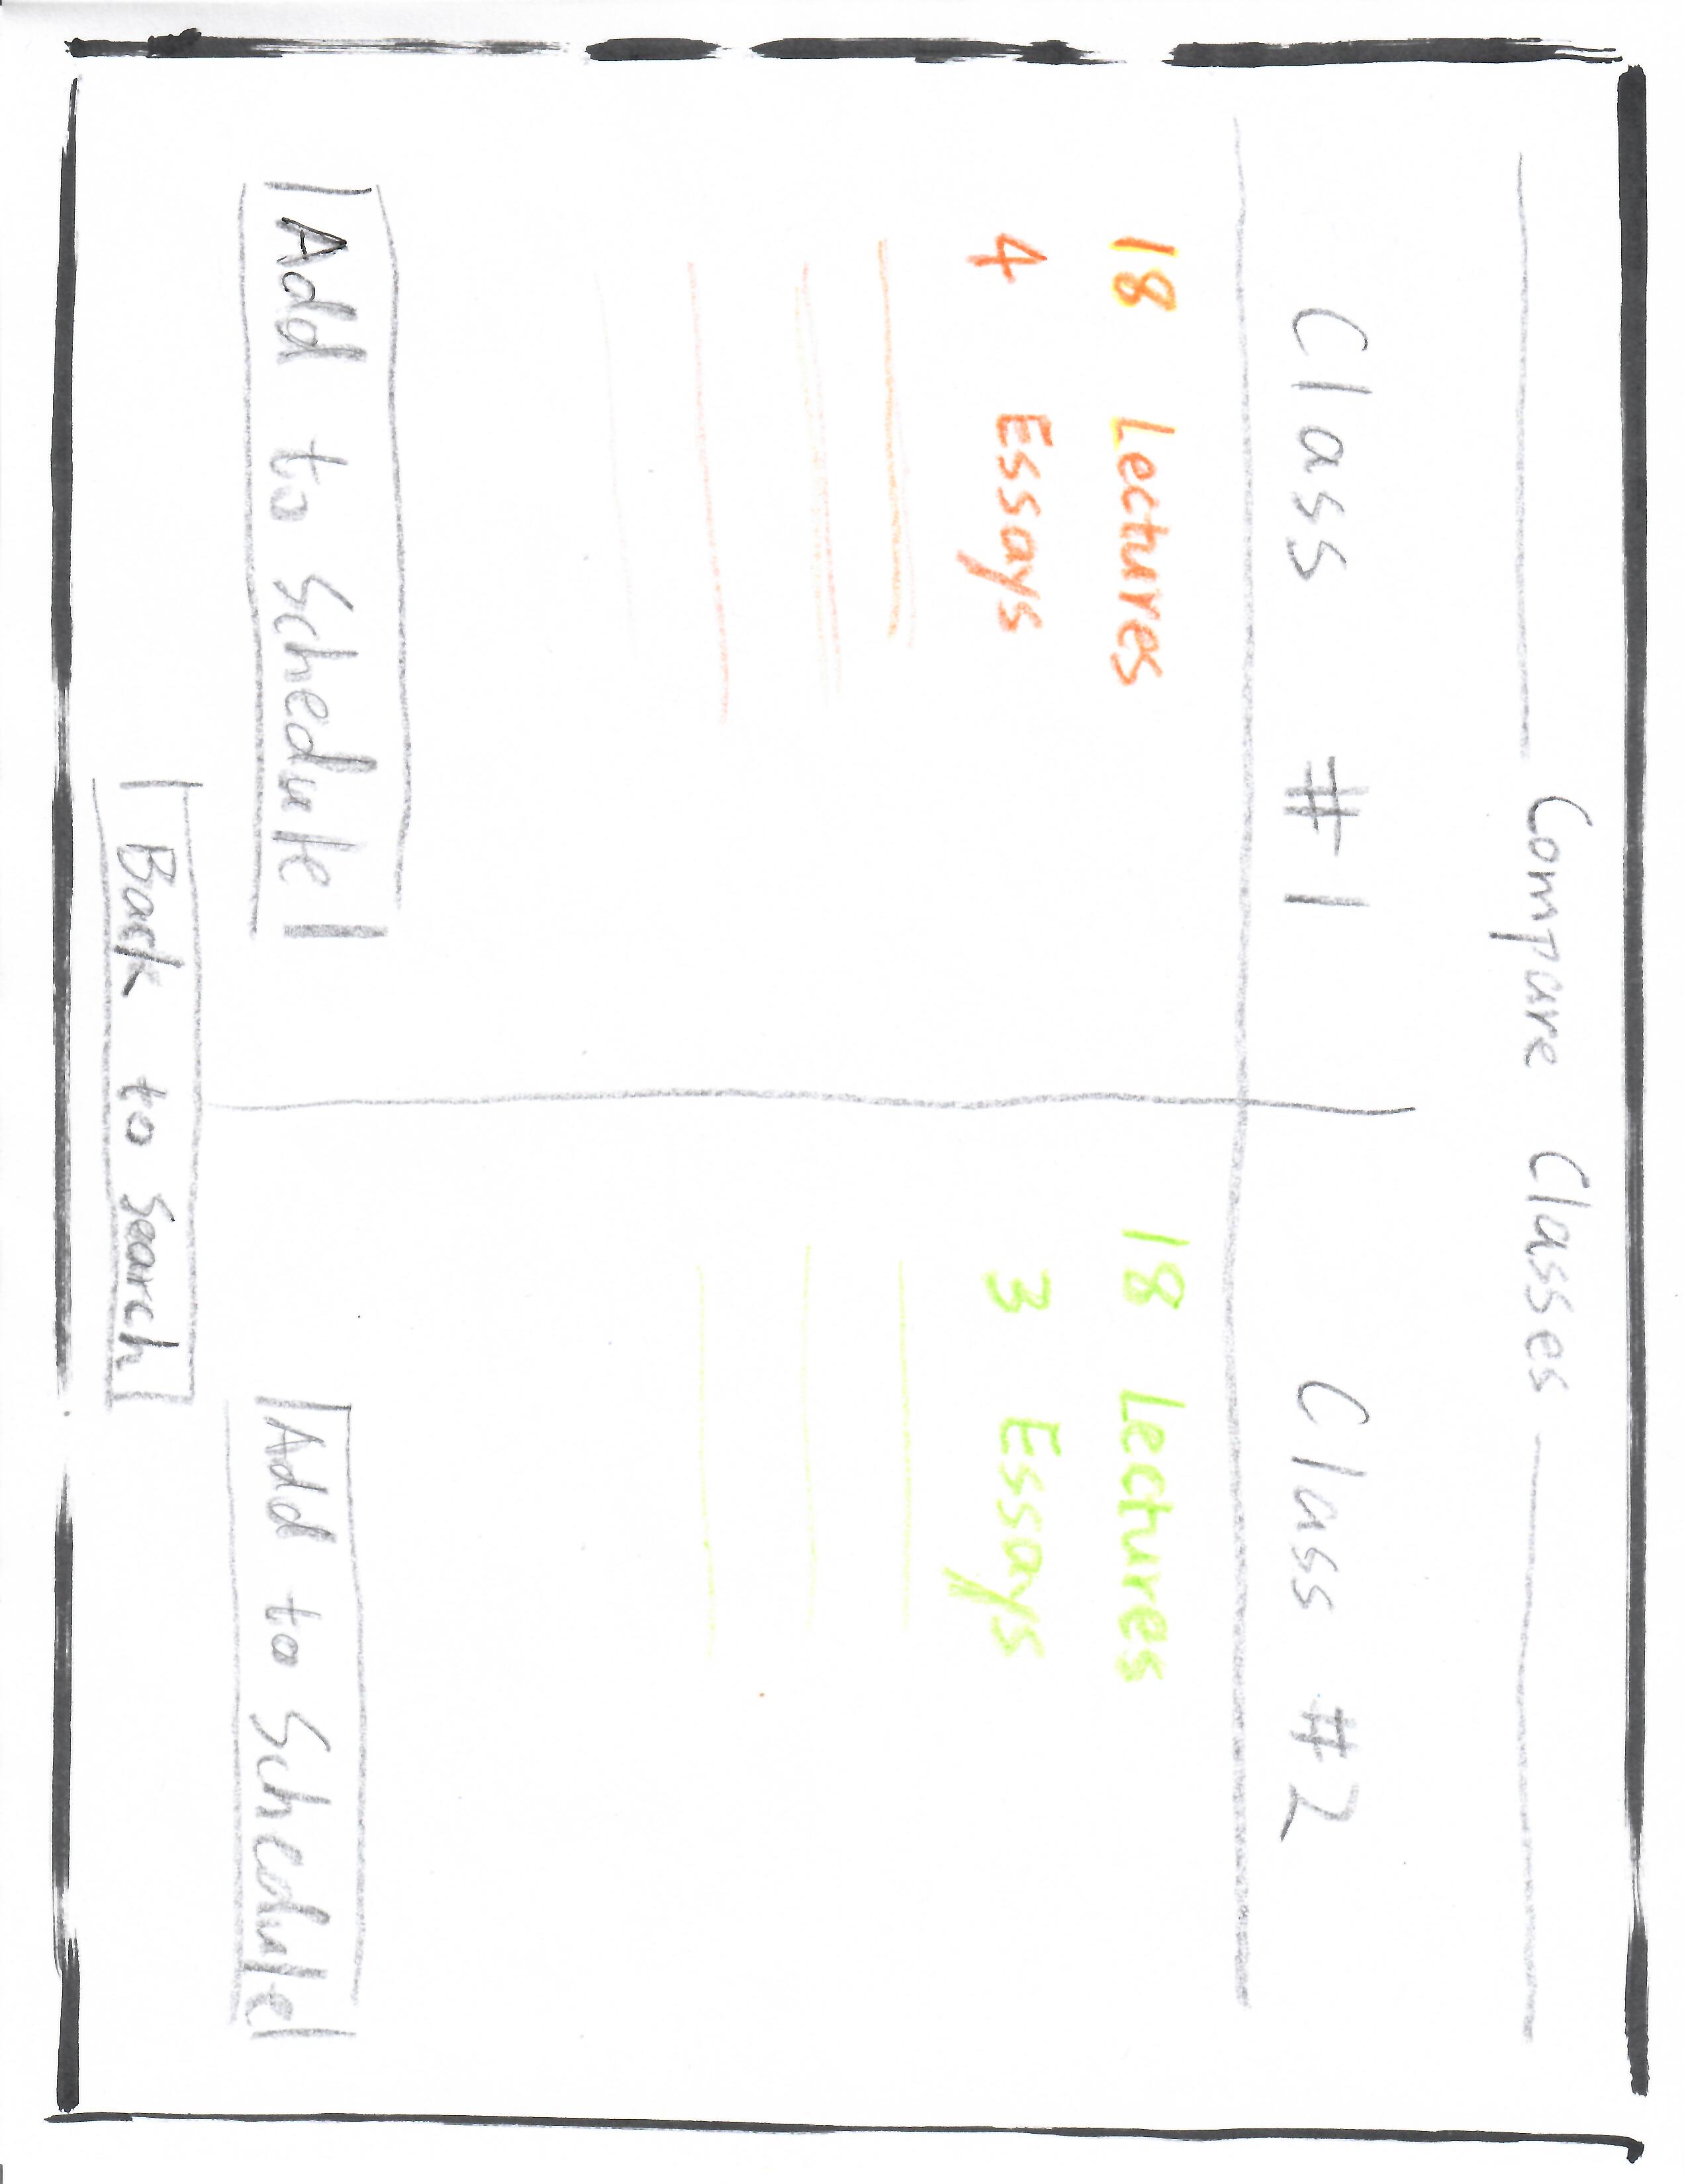 Compare Classes
Class #1
18 Lectures
4 Essays
Add to Schedule
Class #2
18 Lectures
3 Essays
Add to Schedule
Back to Search